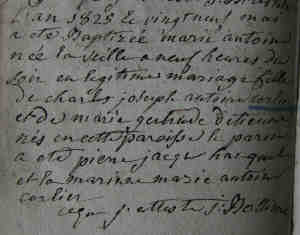 L'an 1825 le vingtneuf mai
a ete Baptizée marie antoin
née la veille a neuf heures du
soir en legitime mariage fille
de charles joseph antoine corlier
et de marie gertrude
nés en cette paroisse le parin
a ete pierre jacque
et la marinne marie antoin
corlier
ceque j'atteste